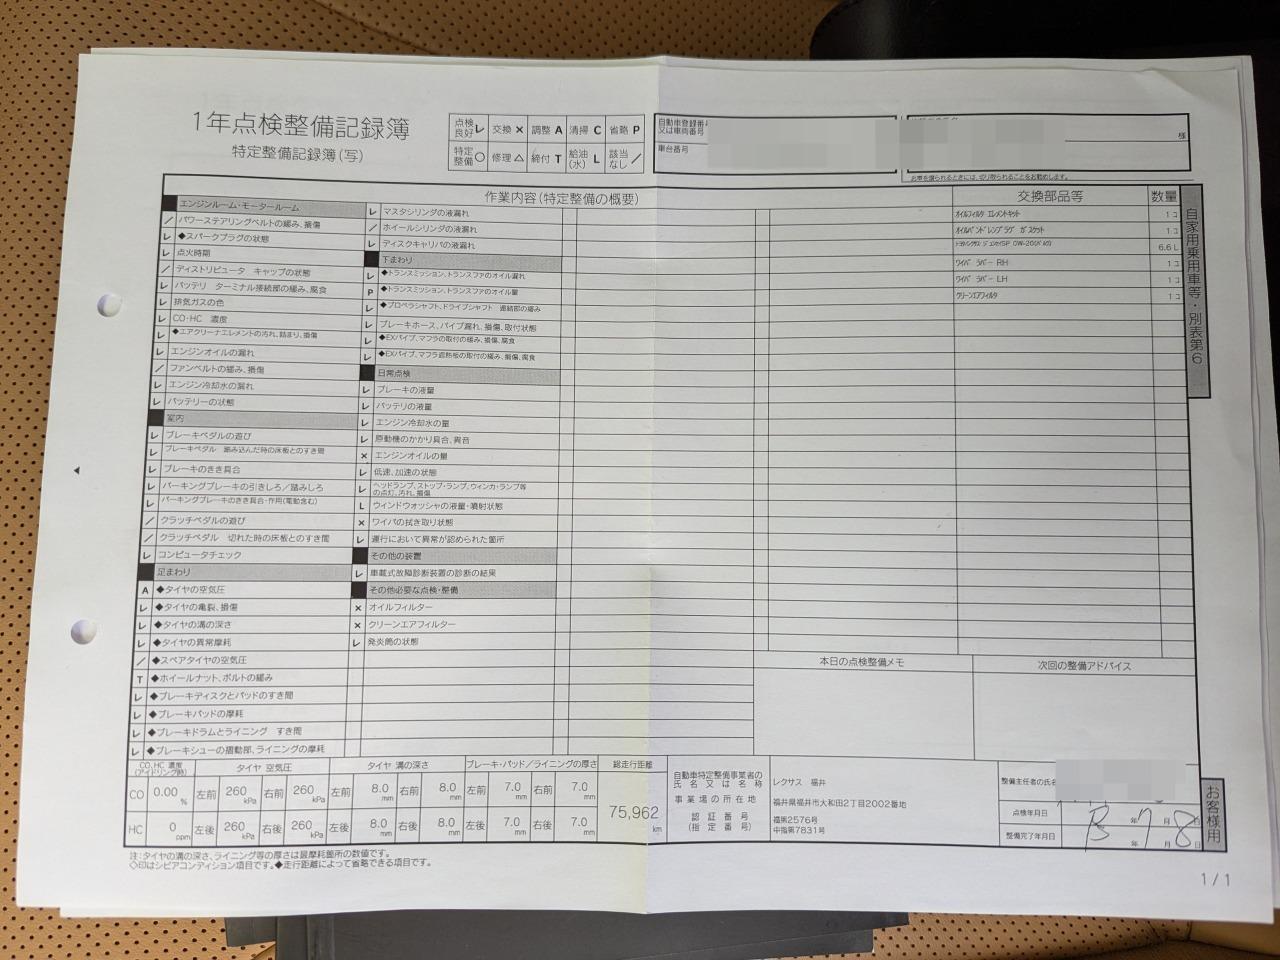 1年点検整備記録簿
特定整備記録簿(写)
点検良好 レ 交換 × 調整 A 清掃 C 省略 P
特定整備 ○ 修理 △ 締付 T 給油(水) L 該当なし /
自動車登録番号又は車両番号
車台番号
様
お車を譲られるときには、切り取られることをお勧めします。
作業内容(特定整備の概要)
交換部品等 数量
エンジンルーム・モータールーム
/ パワーステアリングベルトの緩み、損傷
レ ◆スパークプラグの状態
レ 点火時期
/ ディストリビュータ キャップの状態
レ バッテリ ターミナル接続部の緩み、腐食
レ 排気ガスの色
レ CO・HC 濃度
レ ◆エアクリーナエレメントの汚れ、詰まり、損傷
レ エンジンオイルの漏れ
/ ファンベルトの緩み、損傷
レ エンジン冷却水の漏れ
レ バッテリーの状態
室内
レ ブレーキペダルの遊び
レ ブレーキペダル 踏み込んだ時の床板とのすき間
レ ブレーキのきき具合
レ パーキングブレーキの引きしろ/踏みしろ
レ パーキングブレーキのきき具合・作用(電動含む)
/ クラッチペダルの遊び
/ クラッチペダル 切れた時の床板とのすき間
レ コンピュータチェック
足まわり
A ◆タイヤの空気圧
レ ◆タイヤの亀裂、損傷
レ ◆タイヤの溝の深さ
レ ◆タイヤの異常摩耗
/ ◆スペアタイヤの空気圧
T ◆ホイールナット、ボルトの緩み
レ ◆ブレーキディスクとパッドのすき間
レ ◆ブレーキパッドの摩耗
レ ◆ブレーキドラムとライニング すき間
レ ◆ブレーキシューの摺動部、ライニングの摩耗
レ マスタシリンダの液漏れ
/ ホイールシリンダの液漏れ
レ ディスクキャリパの液漏れ
下まわり
レ ◆トランスミッション、トランスファのオイル漏れ
P ◆トランスミッション、トランスファのオイル量
レ ◆プロペラシャフト、ドライブシャフト 連結部の緩み
レ ブレーキホース、パイプ漏れ、損傷、取付状態
レ ◆EXパイプ、マフラの取付の緩み、損傷、腐食
レ ◆EXパイプ、マフラ遮熱板の取付の緩み、損傷、腐食
日常点検
レ ブレーキの液量
レ バッテリの液量
レ エンジン冷却水の量
レ 原動機のかかり具合、異音
× エンジンオイルの量
レ 低速、加速の状態
レ ヘッドランプ、ストップ・ランプ、ウィンカ・ランプ等の点灯、汚れ、損傷
L ウィンドウォッシャの液量・噴射状態
× ワイパの拭き取り状態
レ 運行において異常が認められた箇所
その他の装置
レ 車載式故障診断装置の診断の結果
その他必要な点検・整備
× オイルフィルター
× クリーンエアフィルター
レ 発炎筒の状態
オイルフィルタ エレメントキット 1コ
オイルパンドレンプラグ ガスケット 1コ
6.6L
ワイパ ラバー RH 1コ
ワイパ ラバー LH 1コ
クリーンエアフィルタ 1コ
自家用乗用車等・別表第6
本日の点検整備メモ
次回の整備アドバイス
CO、HC 濃度(アイドリング時)
CO 0.00 %
HC 0 ppm
タイヤ 空気圧
左前 260 kPa 右前 260 kPa
左後 260 kPa 右後 260 kPa
タイヤ 溝の深さ
左前 8.0 mm 右前 8.0 mm
左後 8.0 mm 右後 8.0 mm
ブレーキ・パッド/ライニングの厚さ
左前 7.0 mm 右前 7.0 mm
左後 7.0 mm 右後 7.0 mm
総走行距離
75,962 km
自動車特定整備事業者の氏名又は名称
事業場の所在地
認証番号(指定番号)
レクサス 福井
福井県福井市大和田2丁目2002番地
福第2576号
中指第7831号
整備主任者の氏名
点検年月日 年 月 日
整備完了年月日 年 月 日
7 8
お客様用
注:タイヤの溝の深さ、ライニング等の厚さは最摩耗箇所の数値です。
◇印はシビアコンディション項目です。◆走行距離によって省略できる項目です。
1/1